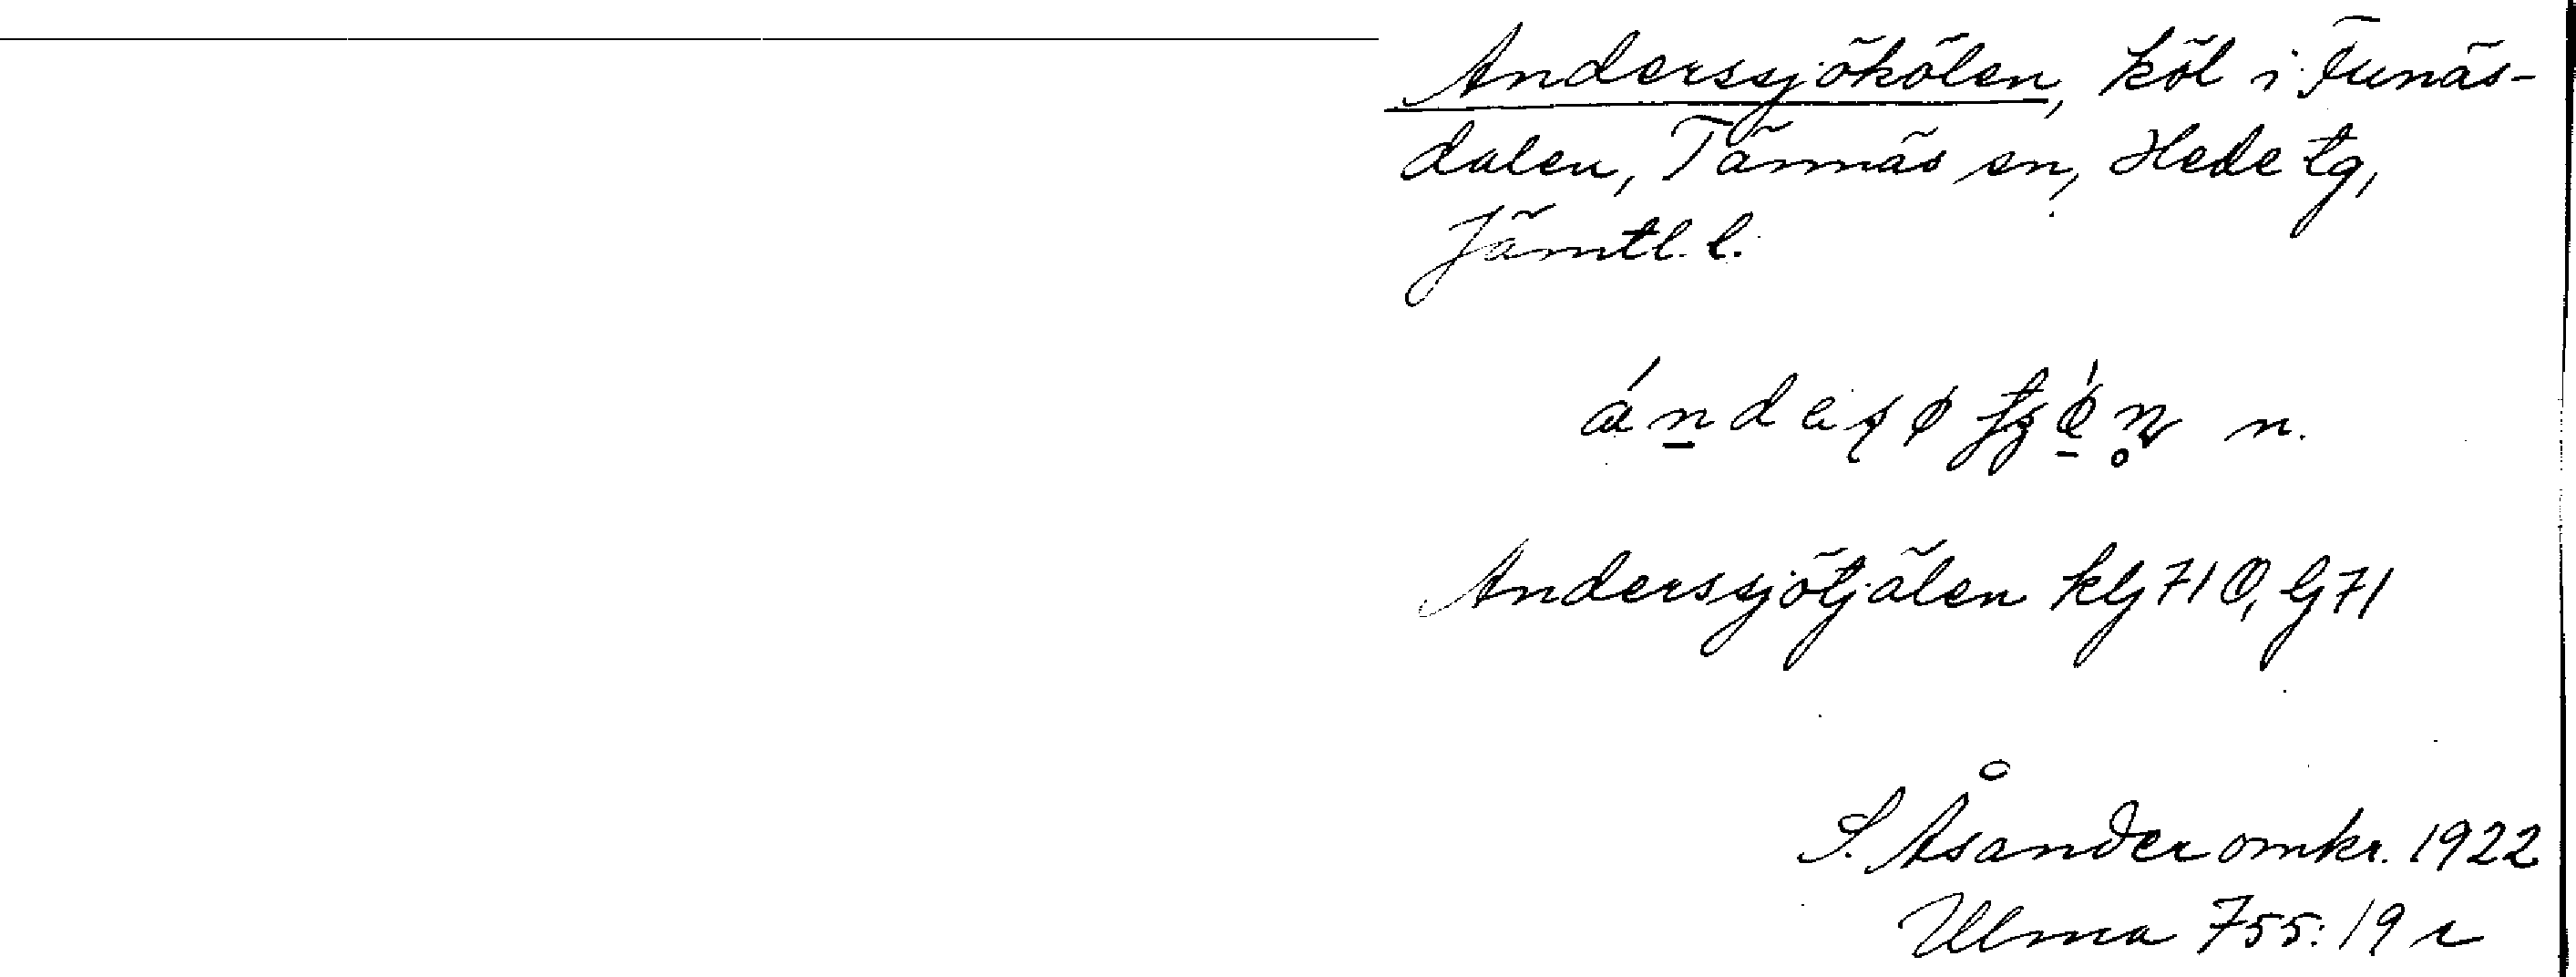 Anderssjökölen, köl i Funäs-
dalen, Tännäs sn, Hede tg,
Jämtl. l.
n.
Anderssjötjälen
S. Åsander omkr. 1922
Ulma 755: 19 r